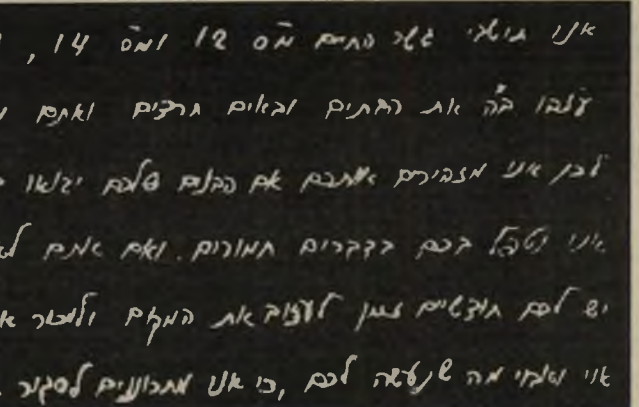 אנו תושבי גשר החיים מס 12 ומס 14 ,
עזבו ב"ה את הבתים ובאים חרדים ואתם
לכן אנו מזהירים אתכם אם הבנים שלכם
אנו נטפל בכם בדברים חמורים. ואם אתם
יש לכם חודשיים זמן לעזוב את המקום ולמכור
אנו מה שנעשה לכם, כי אנו מתכוננים לסגור